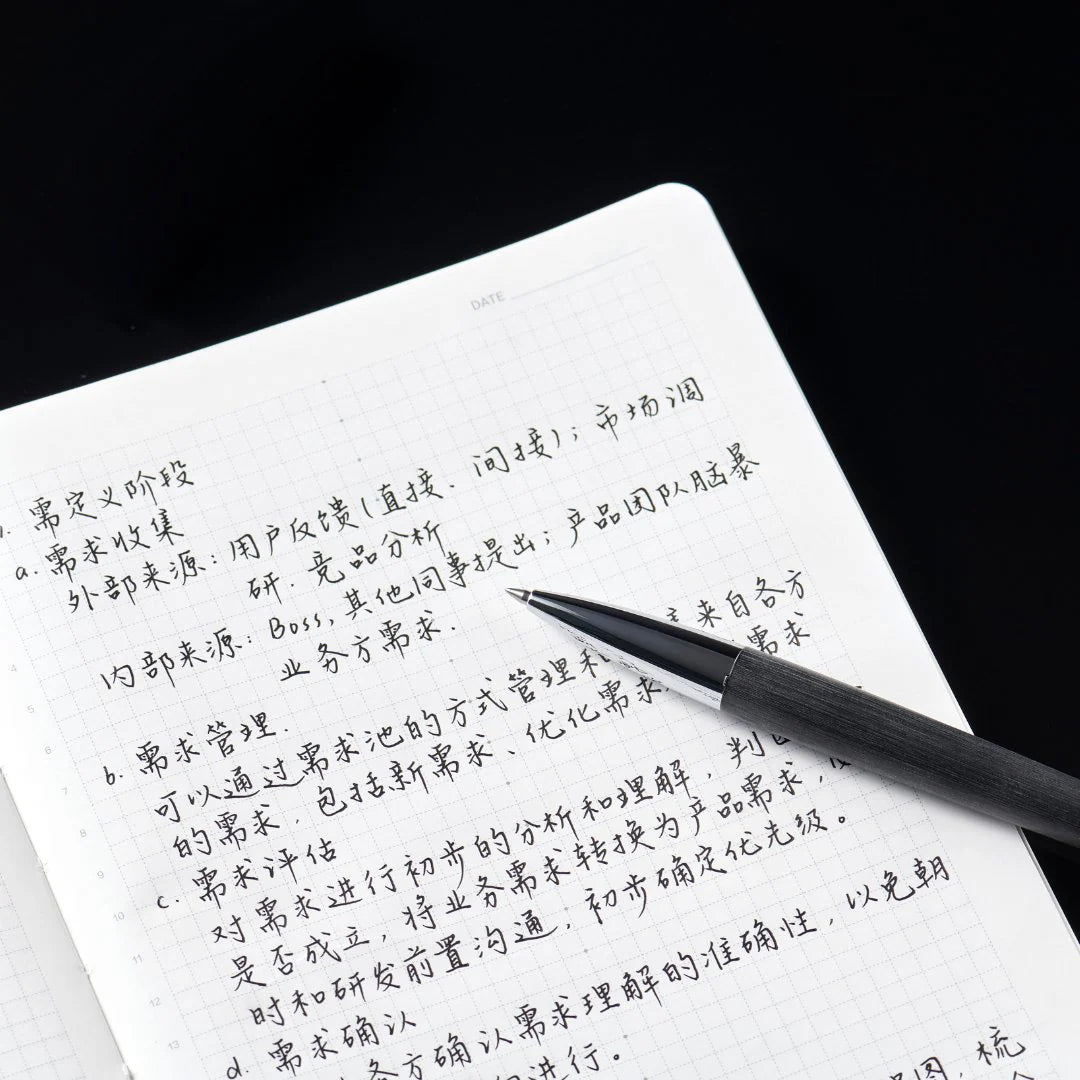 DATE
需定义阶段
a. 需求收集
外部来源：用户反馈(直接、间接)；市场调
研.竞品分析
内部来源：Boss,其他同事提出；产品团队脑暴
业务方需求.
b. 需求管理.
可以通过需求池的方式管理和 来自各方
的需求，包括新需求、优化需求 需求
c. 需求评估
对需求进行初步的分析和理解，判
是否成立，将业务需求转换为产品需求，
时和研发前置沟通，初步确定优先级。
d. 需求确认
各方确认需求理解的准确性，以免朝
进行。
图，梳
4
5
6
7
8
9
10
11
12
13